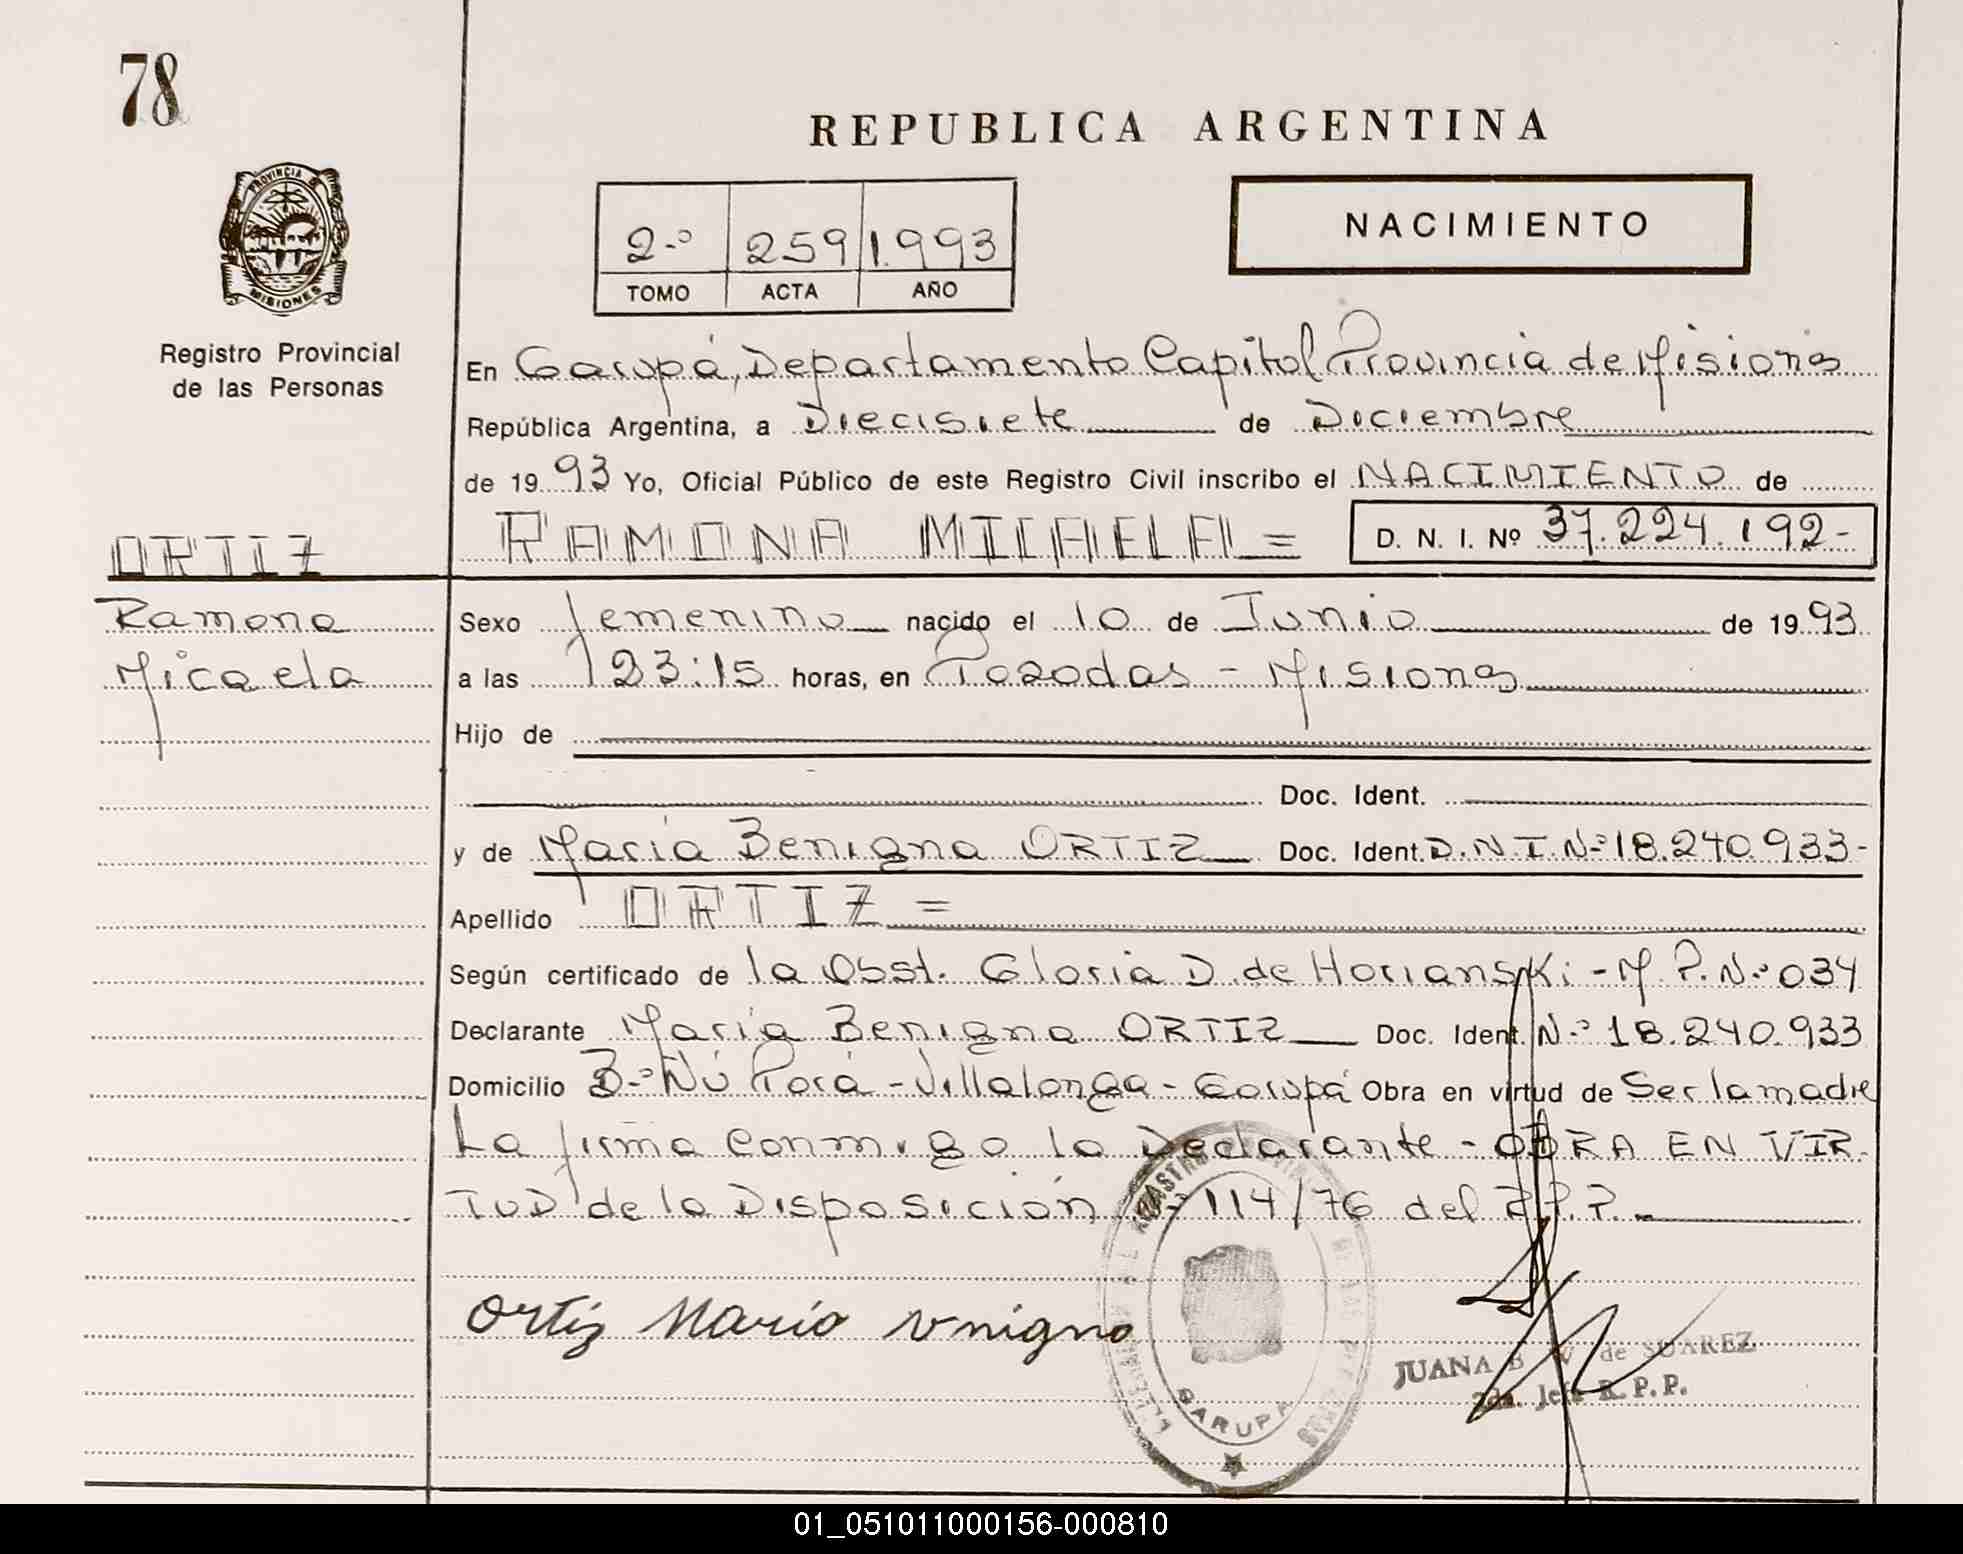 78
REPUBLICA ARGENTINA
PROVINCIA D
MISIONES
Registro Provincial
de las Personas
2-º 259 1.993
TOMO ACTA AÑO
NACIMIENTO
En Garupá, Departamento Capital Provincia de Misiones
República Argentina, a Diecisiete de Diciembre
de 1993 Yo, Oficial Público de este Registro Civil inscribo el NACIMIENTO de
ORTIZ
RAMONA MICAELA =
D. N. I. Nº 37.224.192-
Ramona
Micaela
Sexo femenino nacido el 10 de Junio de 1993
a las 23:15 horas, en Posadas - Misiones
Hijo de
Doc. Ident.
y de María Benigna ORTIZ Doc. Ident. D.N.I.Nº 18.240.933-
Apellido ORTIZ =
Según certificado de la Obst. Gloria D. de Horianski - M.P.N.º 034
Declarante María Benigna ORTIZ Doc. Ident. N.º 18.240.933
Domicilio B.º Ñú Porá - Villalonga - Garupá Obra en virtud de Ser la madre
La firma conmigo la Declarante - OBRA EN VIR-
TUD de la Disposición Nº 114/76 del R.P.P.
Ortiz Maria
GARUPA
JUANA B de SUAREZ
2da. Jefe R.P.P.
01_051011000156-000810